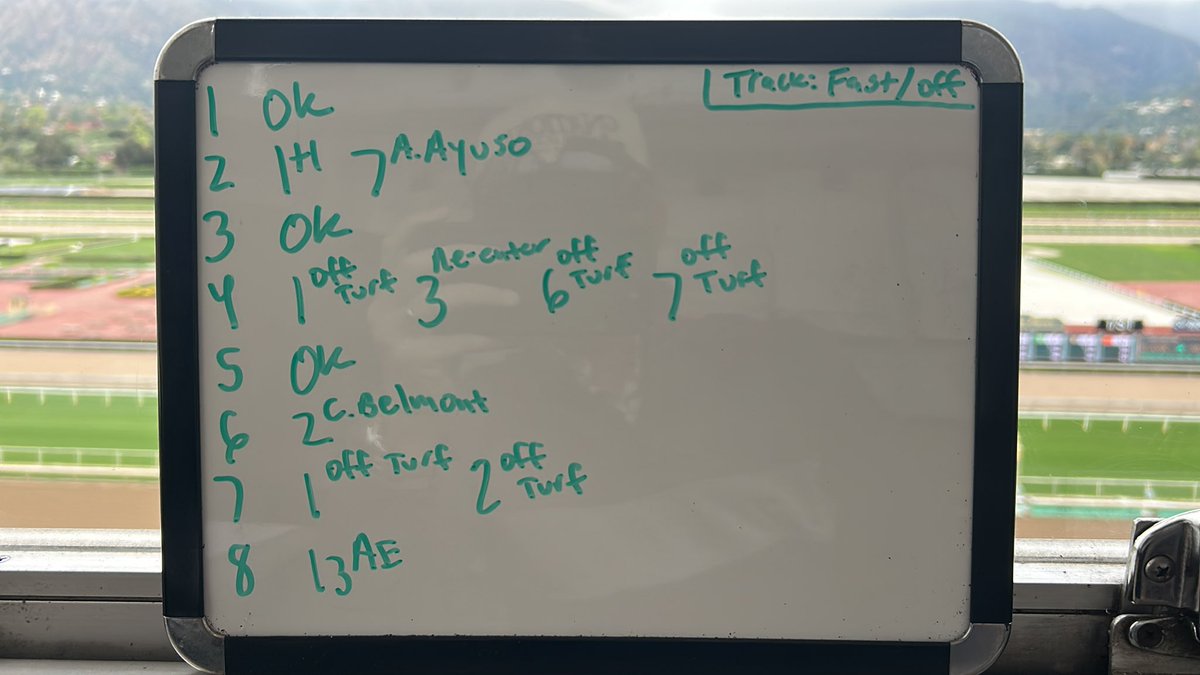 Track: Fast/off
1 Ok
2 1H 7 A.Ayuso
3 Ok
4 1 off Turf 3 Re-enter 6 off Turf 7 off Turf
5 Ok
6 2 C.Belmont
7 1 off Turf 2 off Turf
8 13 AE